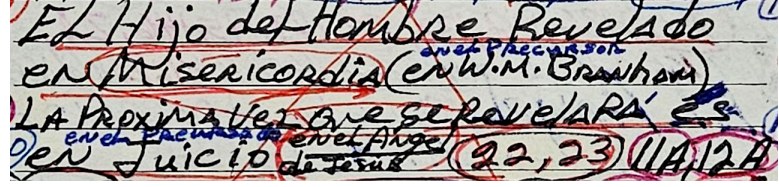 El Hijo del Hombre Revelado
en el PRECURSOR
en Misericordia (en W.M. BRANham)
LA PROXIMA VEZ QUE SE REVELARÁ es
en el PRECURSOR
en Juicio en el Angel de Jesus (22, 23) 11A, 12A